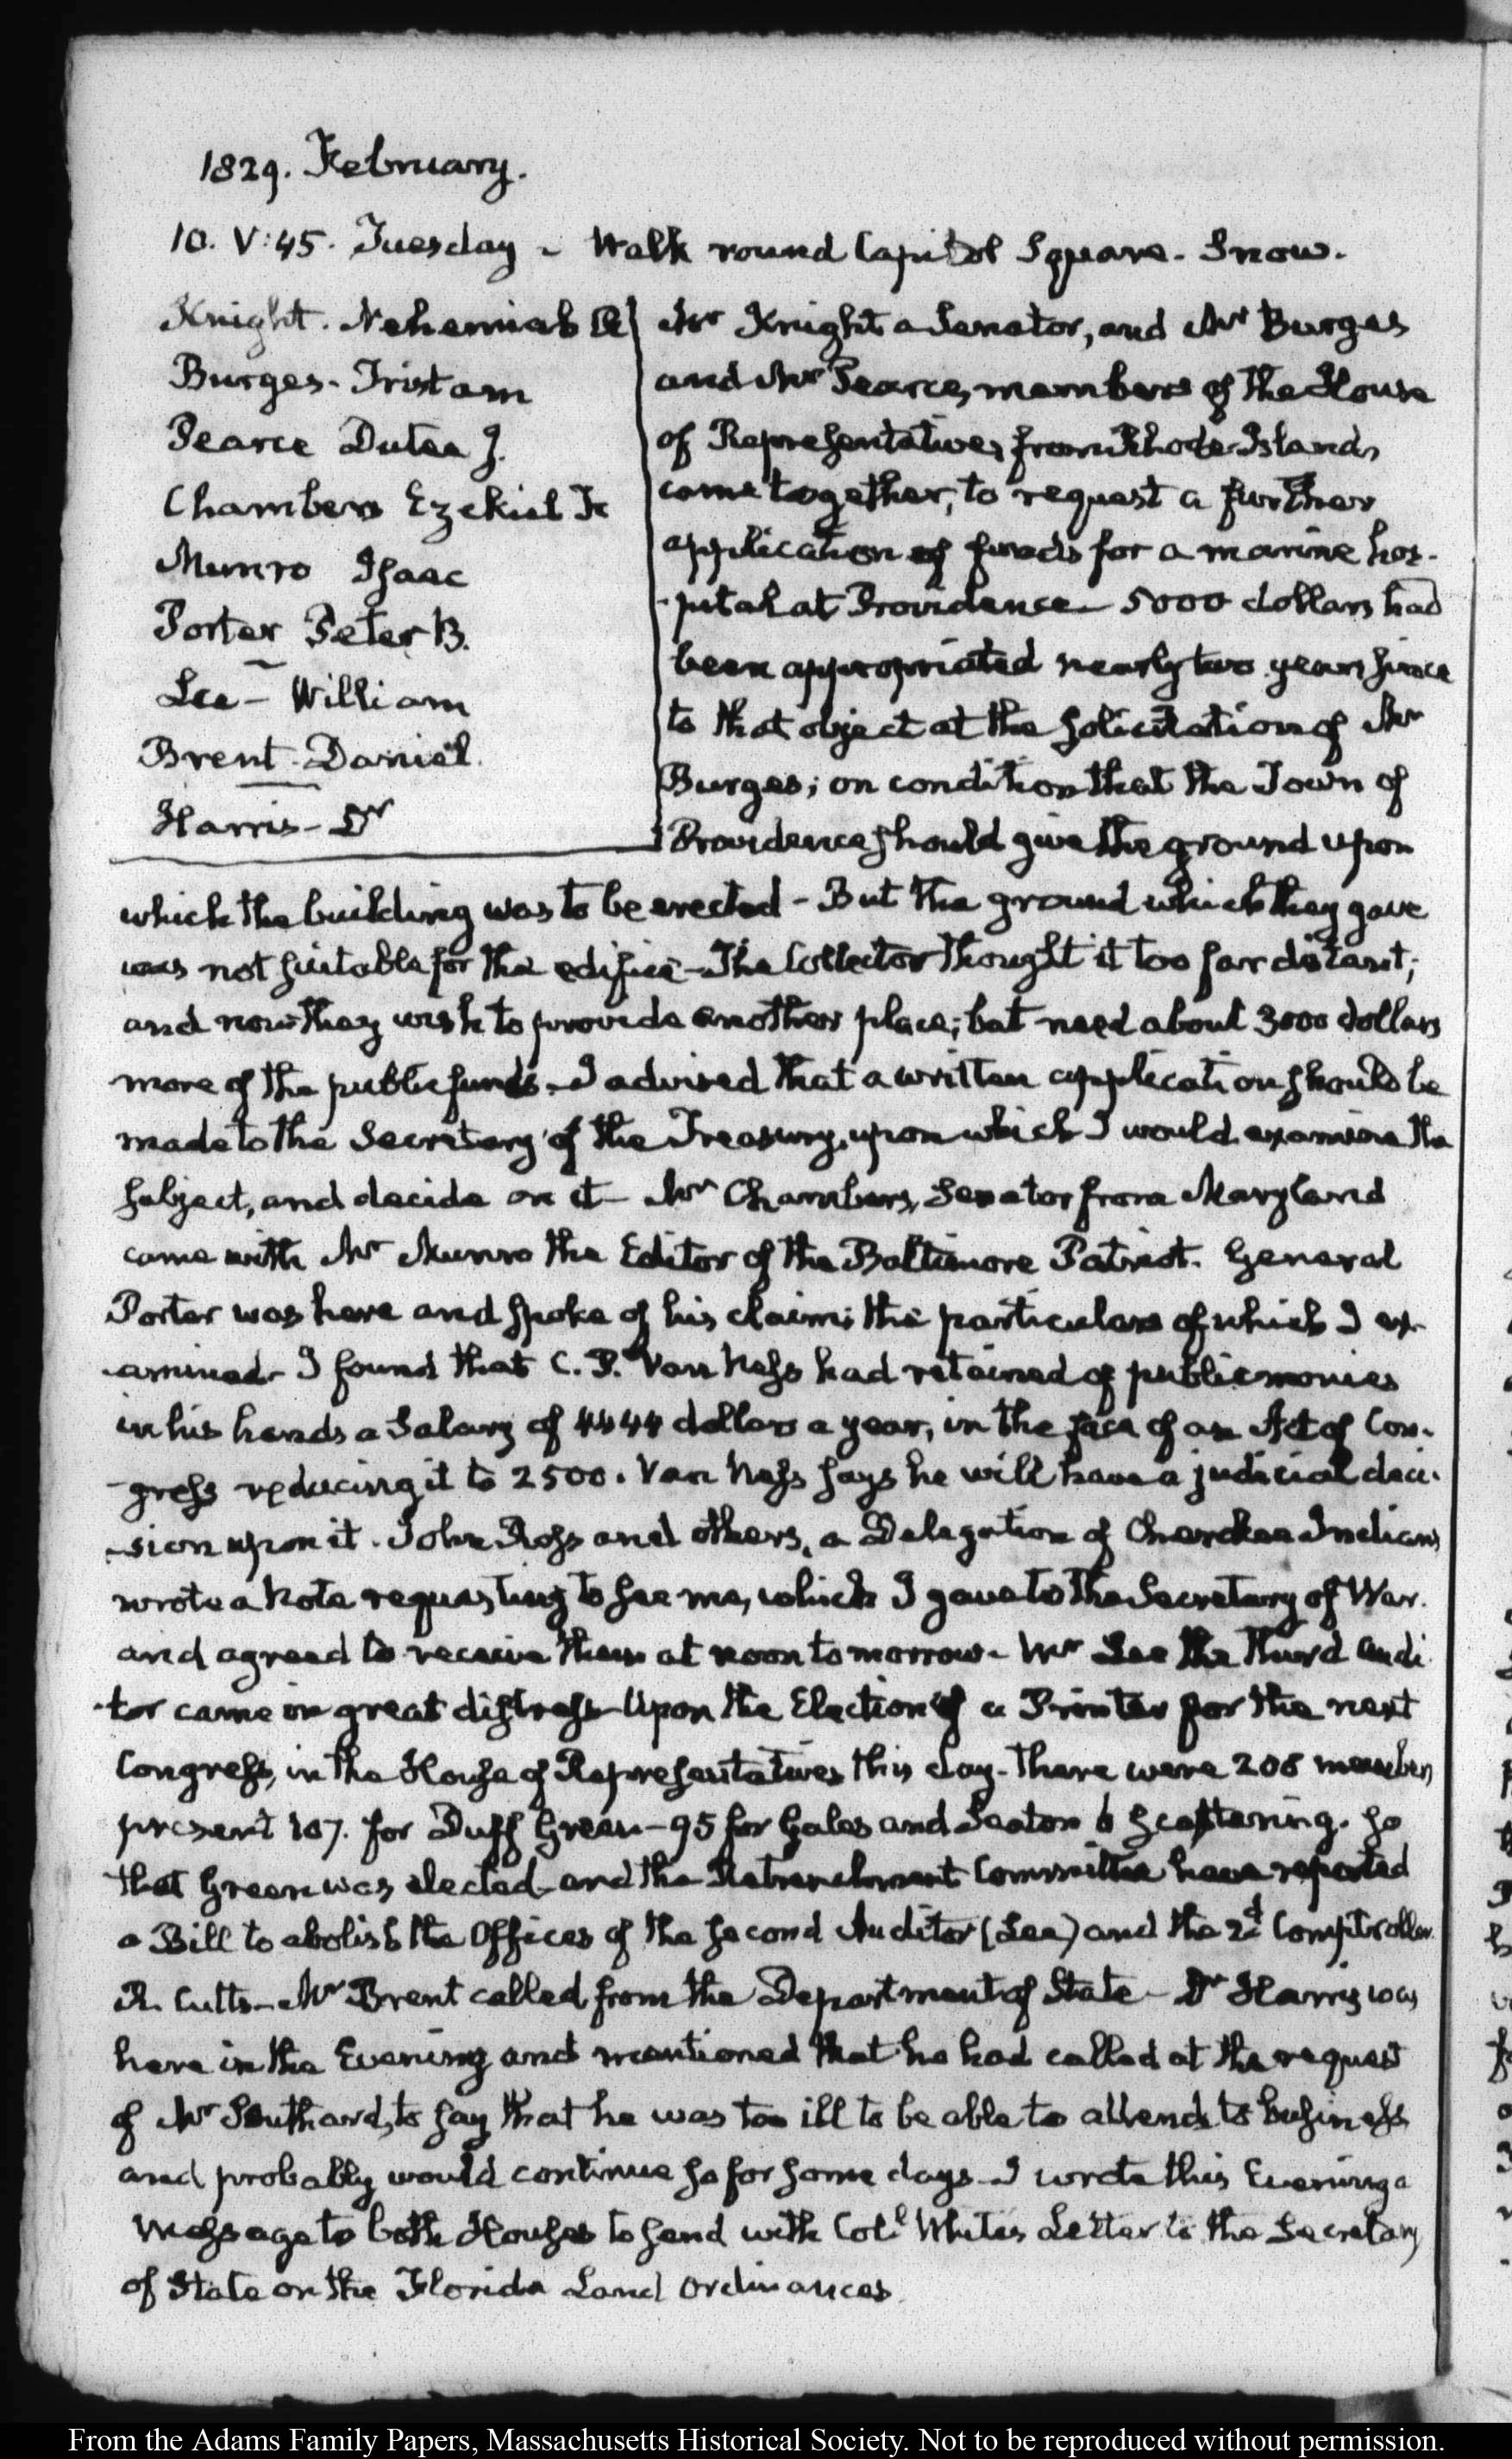 1829. February.
10. V:45. Tuesday - Walk round Capitol Square. Snow.
Knight. Nehemiah R
Burges - Tristam
Pearce Dutee J.
Chambers Ezekiel F.
Munro Isaac
Porter Peter B.
Lee - William
Brent - Daniel
Harris - Dr
Mr Knight a Senator, and Mr Burges
and Mr Pearce, members of the House
of Representatives from Rhode-Island,
came together, to request a further
application of funds for a marine hos-
-pital at Providence - 5000 dollars had
been appropriated nearly two years since
to that object at the solicitation of Mr
Burges; on condition that the Town of
Providence should give the ground upon
which the building was to be erected - But the ground which they gave
was not suitable for the edifice - The Collector thought it too far distant;
and now they wish to provide another place; but need about 3000 dollars
more of the public funds. I advised that a written application should be
made to the Secretary of the Treasury, upon which I would examine the
subject, and decide on it - Mr Chambers, Senator from Maryland
came with Mr Munro the Editor of the Baltimore Patriot. General
Porter was here and spoke of his claim; the particulars of which I ex-
-amined - I found that C. P. Van Ness had retained of public monies
in his hands a Salary of 4444 dollars a year, in the face of an Act of Con-
-gress reducing it to 2500. Van Ness says he will have a judicial deci-
-sion upon it. John Ross and others, a Delegation of Cherokee Indians
wrote a Note requesting to see me, which I gave to the Secretary of War.
and agreed to receive them at noon to morrow. Mr Lee the Third Audi
-tor came in great distress - Upon the Election of a Printer for the next
Congress, in the House of Representatives this day - there were 208 members
present 107. for Duff Green - 95 for Gales and Seaton 6 scattering. So
that Green was elected - and the Retrenchment Committee have reported
a Bill to abolish the Offices of the second Auditor (Lee) and the 2d Comptroller
R. Cutts - Mr Brent called from the Department of State - Dr Harris was
here in the Evening and mentioned that he had called at the request
of Mr Southard, to say that he was too ill to be able to attend to business
and probably would continue so for some days - I wrote this Evening a
Message to both Houses to send with Coll White's Letter to the Secretary
of State on the Florida Land Ordinances.
From the Adams Family Papers, Massachusetts Historical Society. Not to be reproduced without permission.